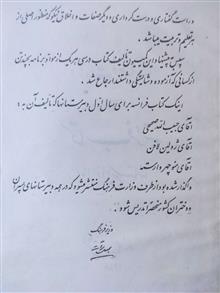 در است گفتاری و درست کرداری و دیگر صفات و اخلاق نیکو که منظور اصلی از
هر تعلیم و تربیت میباشد.
سپس به پیشنهاد این کمیسیون تألیف کتاب درسی هر یک از مواد برنامه بچند تن
از کسانی که آزموده و شایستگی داشتند ارجاع شد.
اینک کتاب فرانسه برای سال اول دبیرستانها که تألیف آن به:
آقای حبیب الله صحیحی
آقای
آقای منوچهر وارسته
واگذار شده بود از طرف وزارت فرهنگ منتشر میشود که در همه دبیرستانهای پسران
و دختران کشور منحصراً تدریس شود.
وزیر فرهنگ